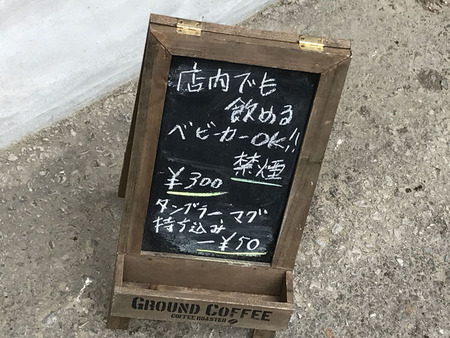 店内でも
飲める
ベビーカーOK!!
禁煙
¥300
タンブラー マグ
持ち込み
ー¥50
GROUND COFFEE
COFFEE ROASTER